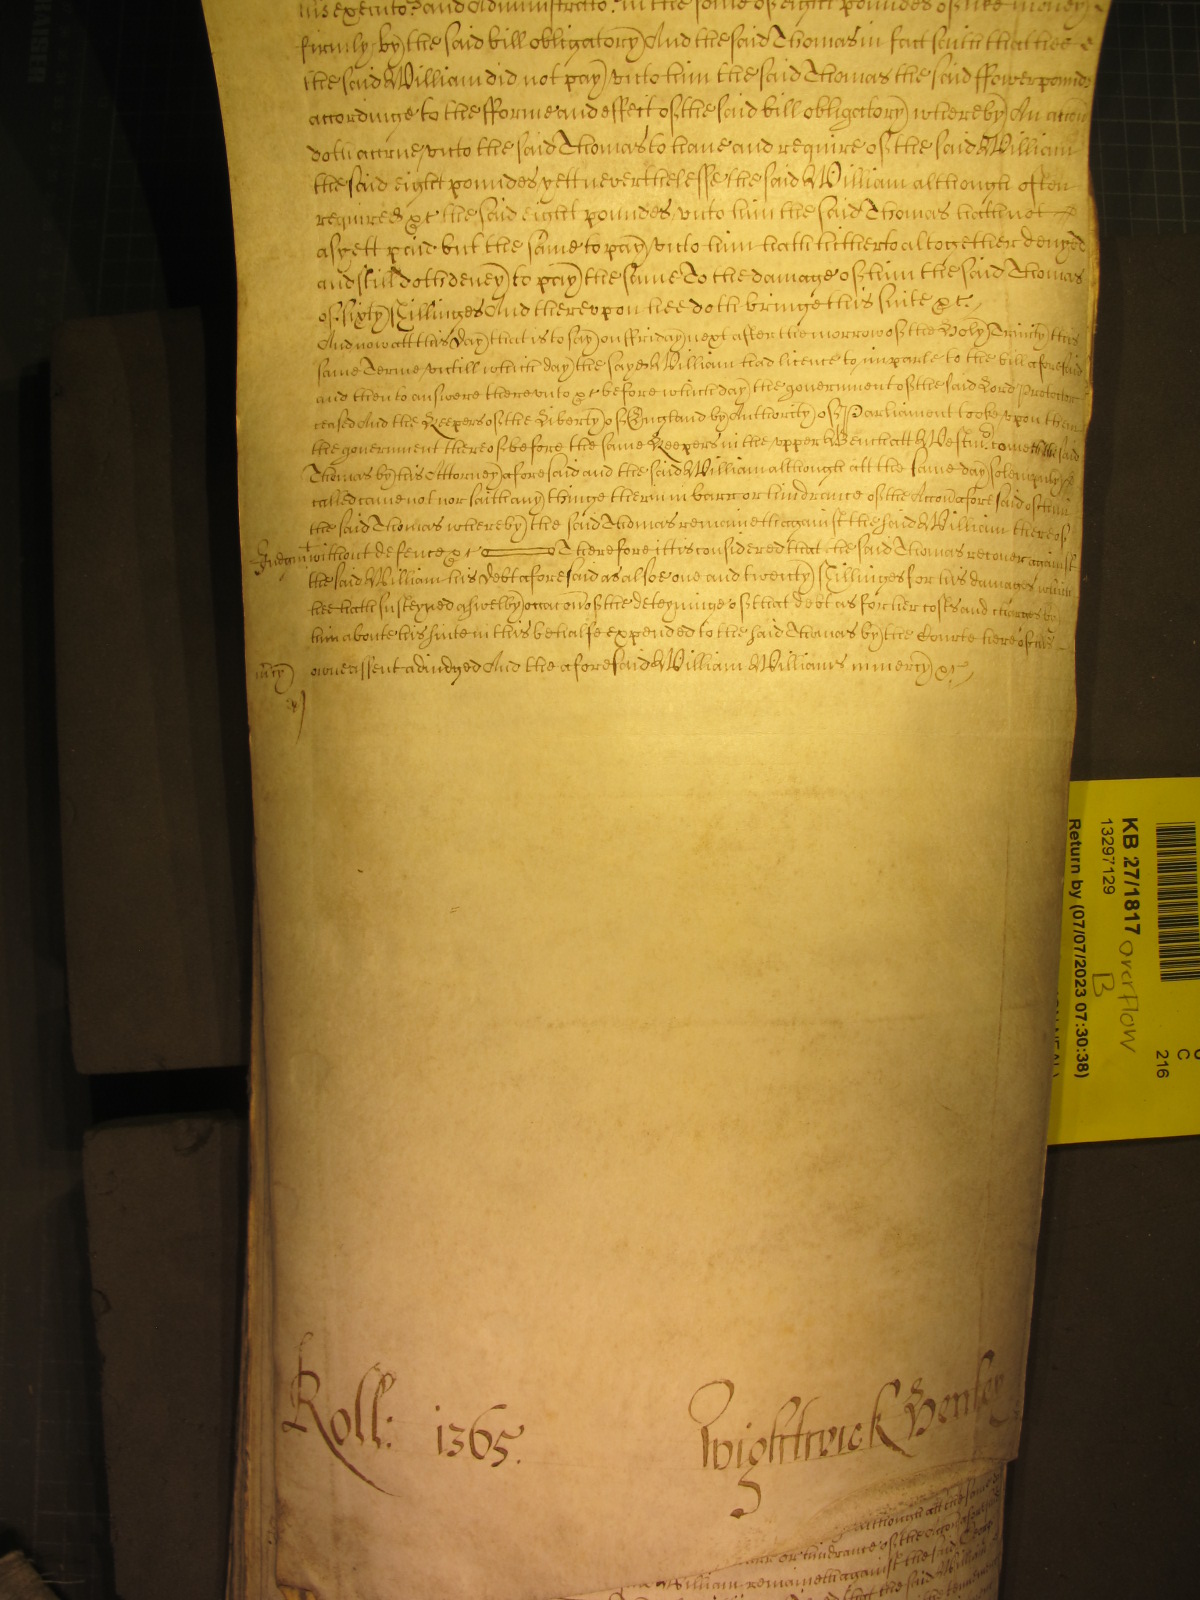 his executors and Administrators in the some of eight poundes of like money
firmly by the said bill obligatory And the said Thomas in fact saith that hee
the said William did not pay vnto him the said Thomas the said ffower poundes
accordinge to the fforme and effect of the said bill obligatory whereby An accon
doth accrue vnto the said Thomas to haue and require of the said William
the said eight poundes yett neverthelesse the said William although often
required &c the said eight poundes vnto him the said Thomas hath not
as yett paid but the same to pay vnto him hath hitherto altogether denyed
and still doth deney to pay the same To the damage of him the said Thomas
of sixty shillinges And therevpon hee doth bringe this suite &c.
And now att this day that is to say on ffriday next after the morrow of the Holy Trinity this
same Terme vntill which day the sayd William had licence to imparle to the bill aforesaid
and then to answere there vnto &c before which day the government of the said Lord Protector
ceased And the Keepers of the Liberty of England by Authority of Parliament tooke vpon them
the government thereof before the same Keepers in the vpper Bench att Westm. cometh the said
Thomas by his Attorney aforesaid and the said William although att the same day solempnly
called came not nor saith any thinge therein in barr or hindrance of the Accon aforesaid of him
the said Thomas whereby the said Thomas remaineth against the said William thereof
Judgmt without defence &c Therefore itt is considered that the said Thomas recover against
the said William his debt aforesaid as alsoe one and twenty shillinges for his damages which
hee hath susteyned aswell by occacon of the deteyninge of that debt as for his costs and charges by
him aboute his suite in this behalfe expended to the said Thomas by the Courte here of his
mercy owne assent adiudged And the aforesaid William Williams in mercy &c
Roll: 1365.
Wightwick Henley
although att the same d
or hindrance of the Accon afores
William remaineth against the said Georg
the said William
KB 27/1817 overflow
B
13297129
Return by (07/07/2023 07:30:38)
C
216